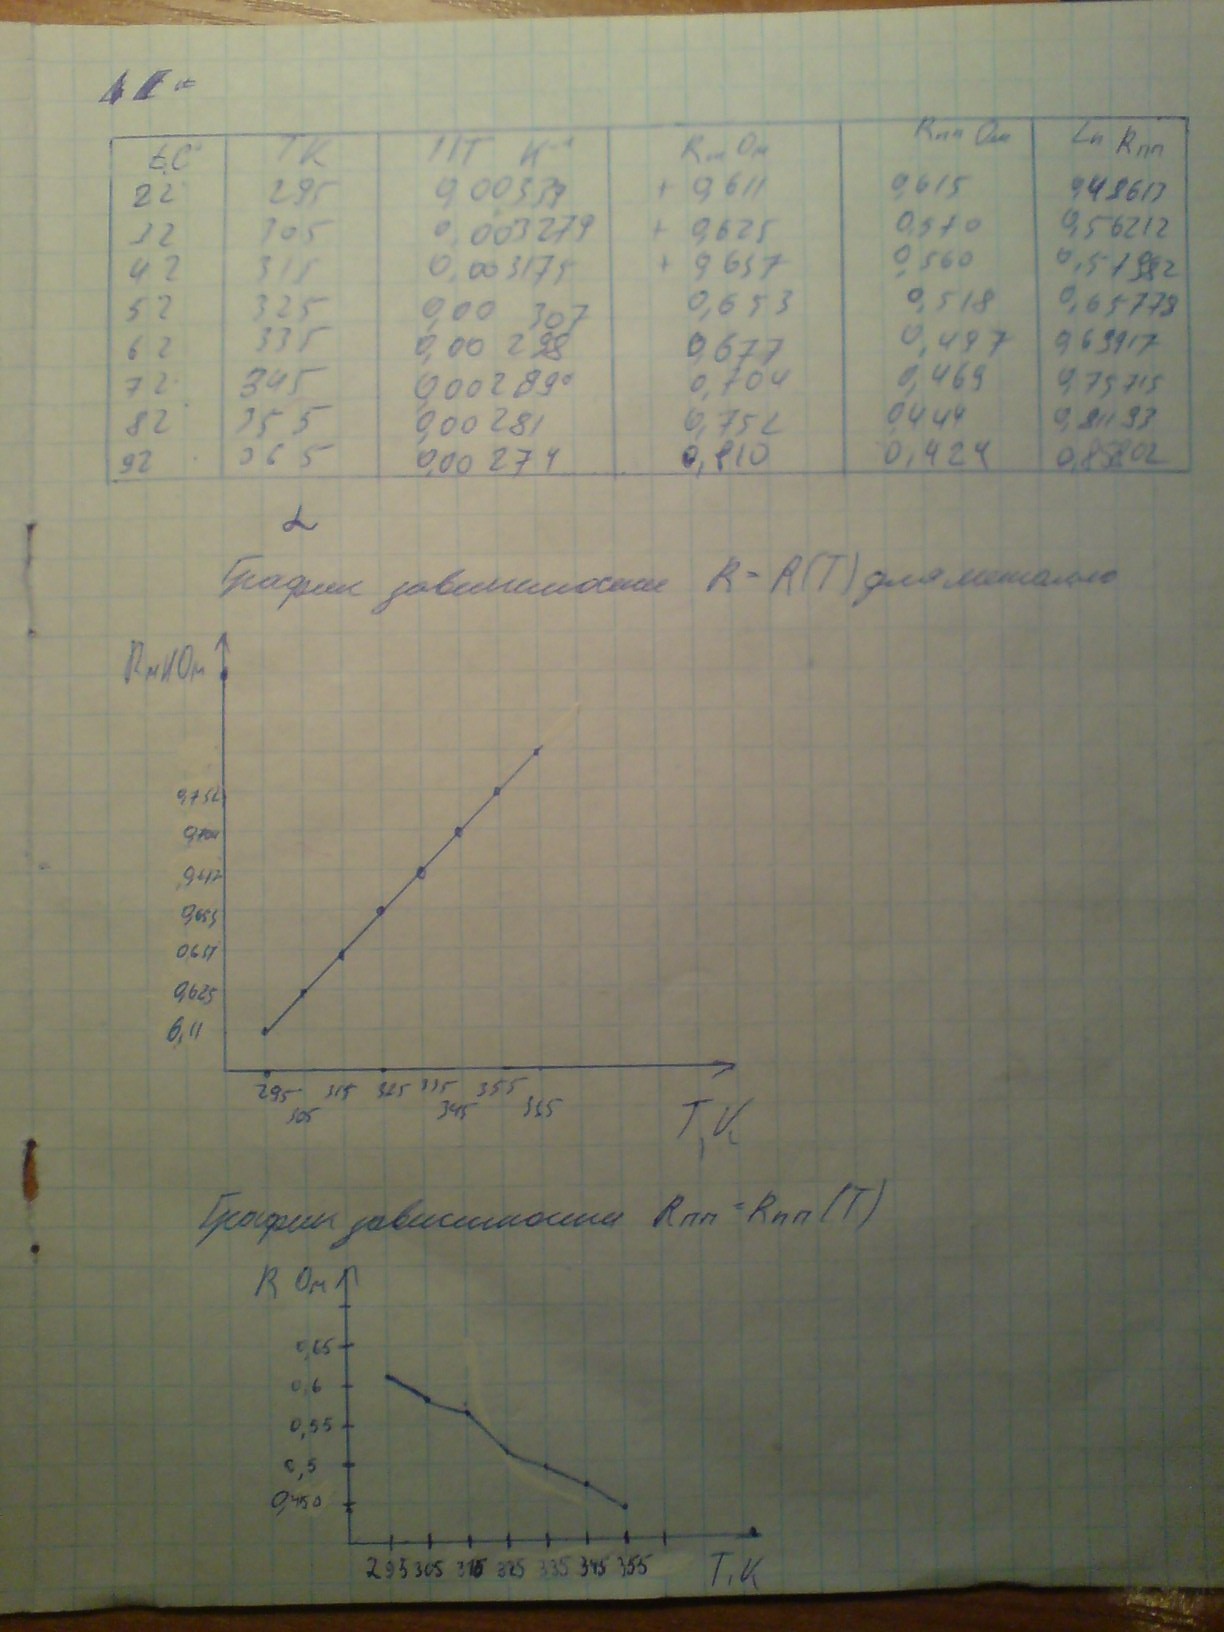 t,C° T K 1/T K⁻¹ Rм Ом Rпп Ом Ln Rпп
22 295 0,00339 + 0,611 0,615 0,48613
32 305 0,003279 + 0,625 0,570 0,56212
42 315 0,003175 + 0,637 0,560 0,57982
52 325 0,00 307 0,653 0,518 0,65778
62 335 0,00 298 0,677 0,497 0,69917
72 345 0,00 2890 0,704 0,469 0,75715
82 355 0,00 281 0,752 0,444 0,81193
92 365 0,00 274 0,810 0,424 0,85802
α
График зависимости R = R(T) для металла
Rм, Ом
0,752
0,704
0,653
0,637
0,625
6,11
295 315 325 335 355
305 345
T, K
График зависимости Rпп = Rпп (T)
R Ом
0,65
0,6
0,55
0,5
0,450
295 305 315 325 335 345 355 T, K